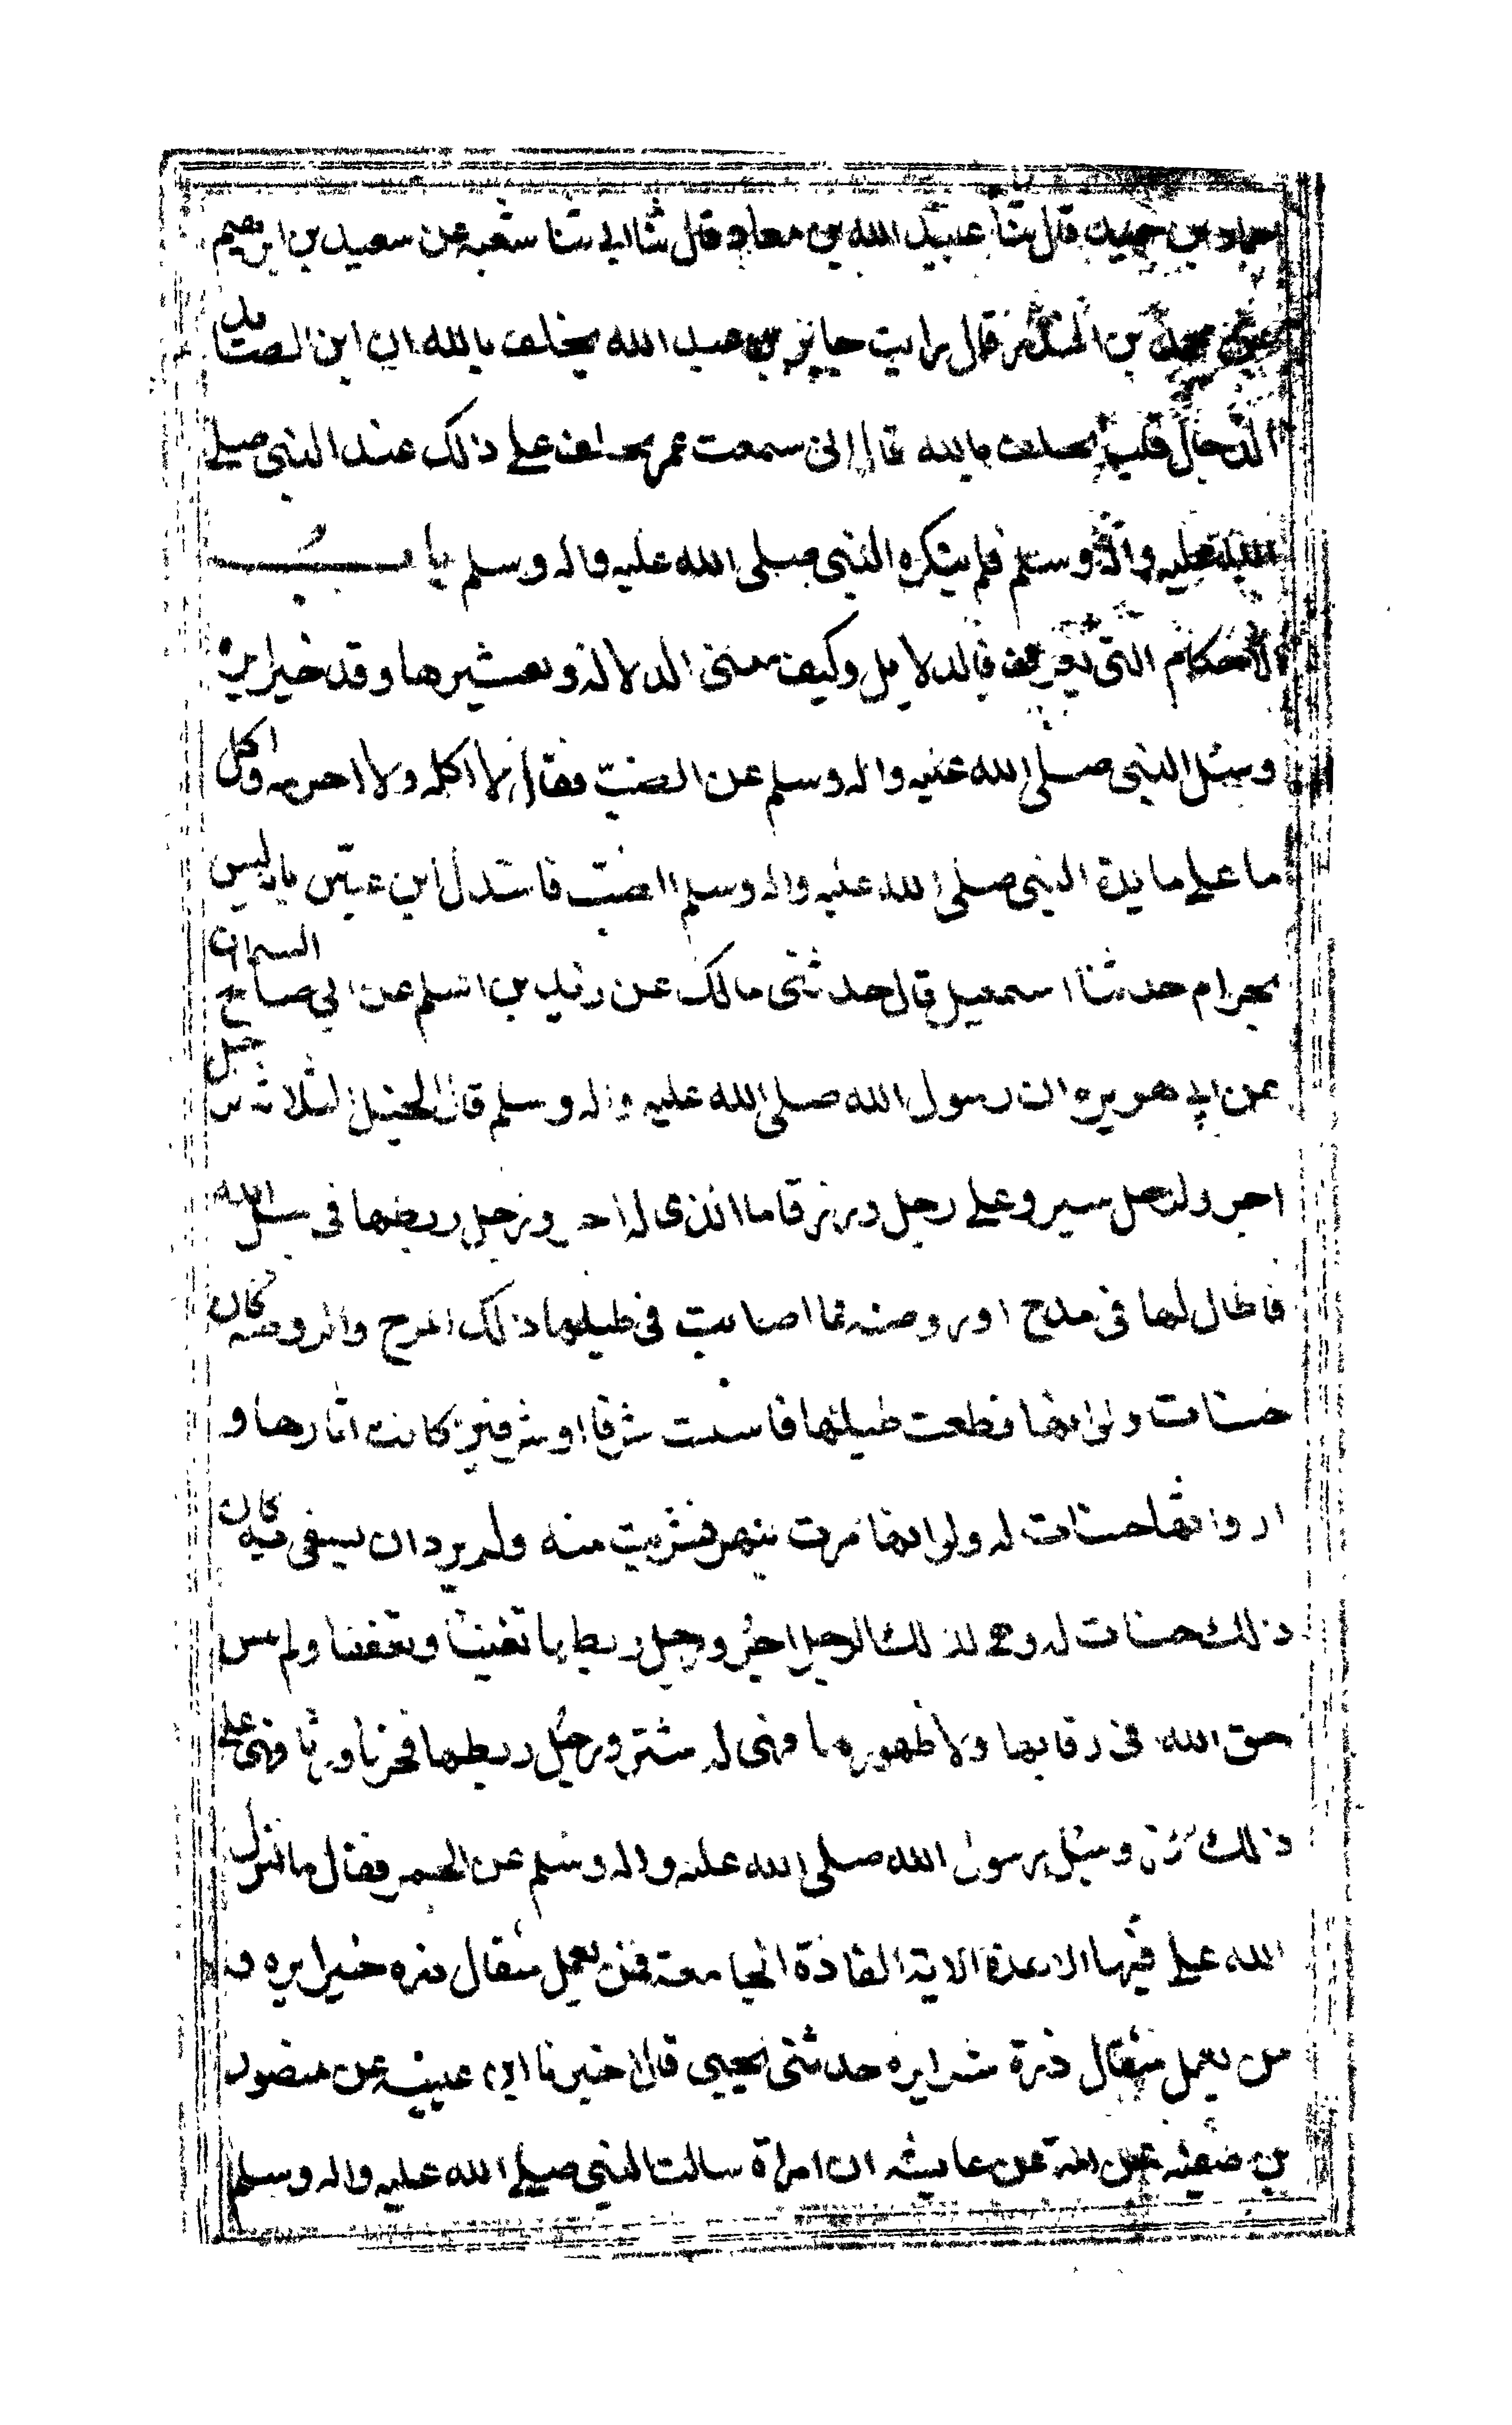 حماد بن حميد قال ثنا عبيد الله بن معاذ قال ثنا ابي ثنا شعبة عن سعيد بن ابرهيم
عن محمد بن المنكدر قال رايت جابر بن عبد الله يحلف بالله ان ابن الصايد
الدجال قلت تحلف بالله قال اني سمعت عمر يحلف على ذلك عند النبي صلى
الله عليه واله وسلم فلم ينكره النبي صلى الله عليه واله وسلم باب
الاحكام التي تعرف بالدلايل وكيف معنى الدلالة وتفسيرها وقد خبر
وسئل النبي صلى الله عليه واله وسلم عن الضب فقال لا اكله ولا احرمه واكل
ما على مايدة النبي صلى الله عليه واله وسلم الضب فاستدل ابن عباس بانه ليس
بحرام حدثنا اسمعيل قال حدثني مالك عن زيد بن اسلم عن ابي صالح السمان
عن ابي هريره ان رسول الله صلى الله عليه واله وسلم قال الخيل لثلاثة
اجر ولرجل ستر وعلى رجل وزر فاما الذي له اجر فرجل ربطها في سبيل الله
فاطال لها في مرج او روضة فما اصابت في طيلها ذلك المرج والروضه كان
حسنات ولو انها قطعت طيلها فاستنت شرفا او شرفين كانت اثارها و
ارواثها حسنات له ولو انها مرت بنهر فشربت منه ولم يرد ان يسقى به كان
ذلك حسنات له وهي لذلك الرجل اجر ورجل ربطها تغنيا وتعففا ولم ينس
حق الله في رقابها ولا ظهورها فهى له ستر ورجل ربطها فخرا ورئا فهى على
ذلك وزر وسئل رسول الله صلى الله عليه واله وسلم عن الحمر فقال ما انزل
الله على فيها الا هذه الاية الفاذة الجامعة فمن يعمل مثقال ذره خيرا يره و
من يعمل مثقال ذرة شرا يره حدثني يحيى قال اخبرنا ابن عيينه عن منصور
بن صفيه عن امه عن عايشه ان امراة سالت النبي صلى الله عليه واله وسلم